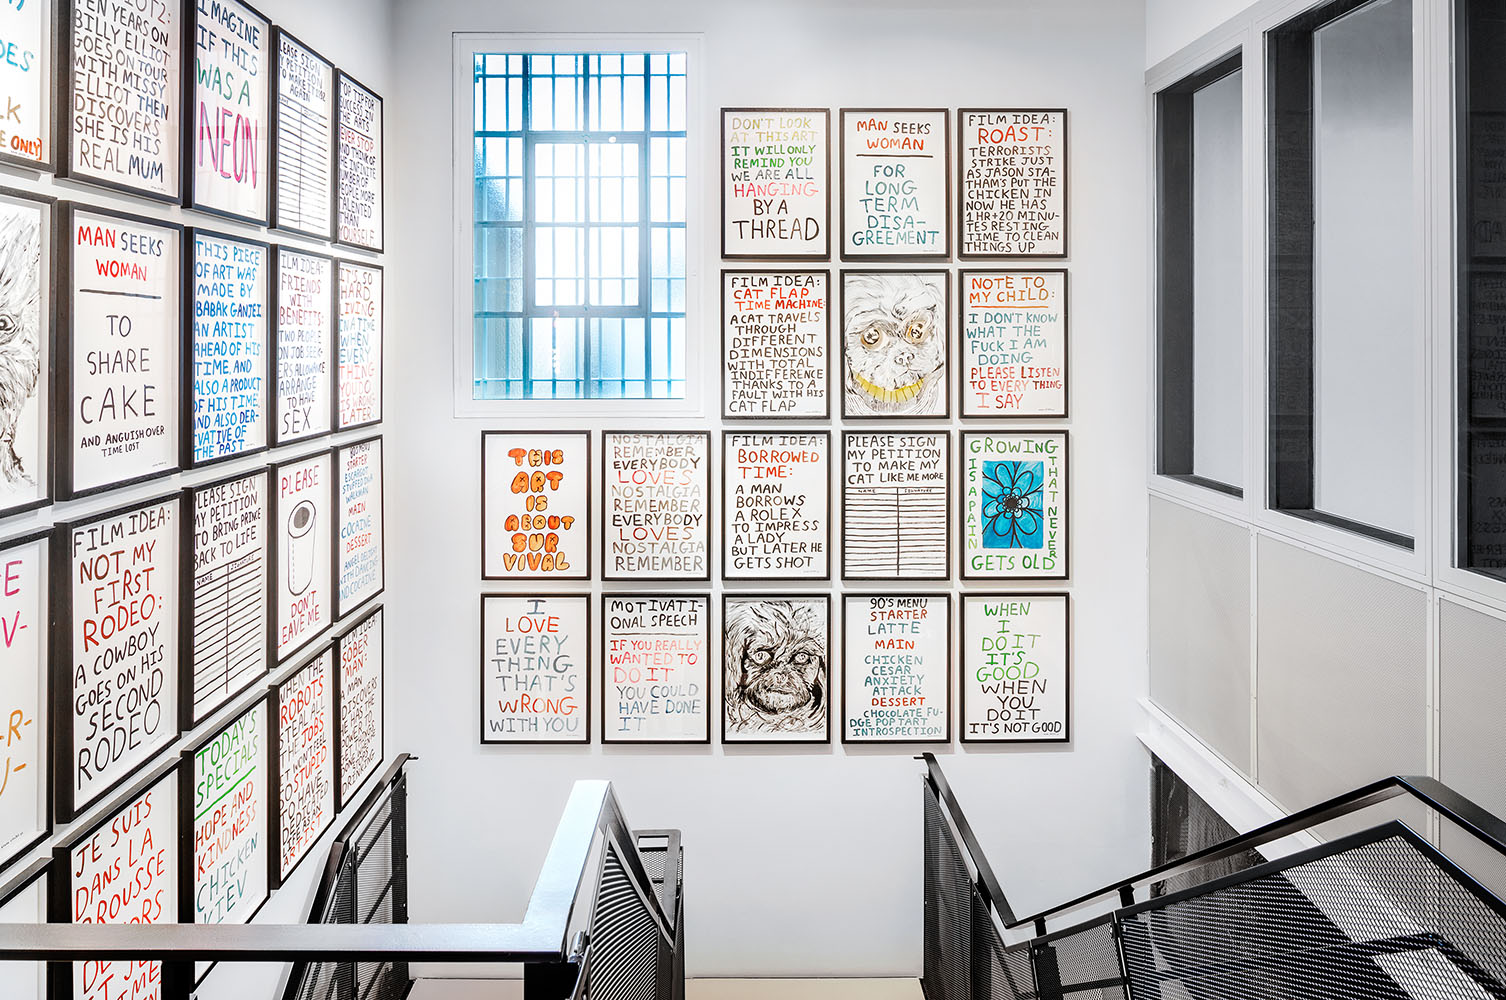 DES
LK
E ONLY)
TEN YEARS ON
BILLY ELLIOT
GOES ON TOUR
WITH MISSY
ELLIOT THEN
DISCOVERS
SHE IS HIS
REAL MUM
IMAGINE
IF THIS
WAS A
NEON
LEASE SIGN
AGAIN
TOP TIP FOR
SUCCESS IN
THE ARTS
EVER STOP
AND THINK OF
THE SHEER
NUMBER OF
PEOPLE MORE
TALENTED
THAN
YOURSELF
MAN SEEKS
WOMAN
TO
SHARE
CAKE
AND ANGUISH OVER
TIME LOST
THIS PIECE
OF ART WAS
MADE BY
BABAK GANJEI
AN ARTIST
AHEAD OF HIS
TIME, AND
ALSO A PRODUCT
OF HIS TIME,
AND ALSO DER-
IVATIVE OF
THE PAST
ILM IDEA:
FRIENDS
WITH
BENEFITS:
TWO PEOPLE
ON JOB SEEK-
ERS ALLOWANCE
ARRANGE
TO HAVE
SEX
IT'S SO
HARD
LIVING
IN A TIME
WHEN
EVERY
THING
YOU DO
IS WRONG
LATER
FILM IDEA:
NOT MY
FIRST
RODEO:
A COWBOY
GOES ON HIS
SECOND
RODEO
LEASE SIGN
MY PETITION
TO BRING PRINCE
BACK TO LIFE
NAME SIGNATURE
PLEASE
DON'T
LEAVE ME
STARTER
MAIN
COCAINE
DESSERT
ANGEL DELIGHT
AND COCAINE
JE SUIS
DANS LA
ROUSSE
TODAY'S
SPECIALS
HOPE AND
KINDNESS
CHICKEN
KIEV
WHEN THE
ROBOTS
THE JOBS
STUPID
TO HAVE
ARTIST
SOBER
MAN:
A MAN
DISCOVERS
HE HAS THE
DRINKING
DON'T LOOK
AT THIS ART
IT WILL ONLY
REMIND YOU
WE ARE ALL
HANGING
BY A
THREAD
MAN SEEKS
WOMAN
FOR
LONG
TERM
DISA-
GREEMENT
FILM IDEA:
ROAST:
TERRORISTS
STRIKE JUST
AS JASON STA-
THAM'S PUT THE
CHICKEN IN
NOW HE HAS
1 HR+20 MINU-
TES RESTING
TIME TO CLEAN
THINGS UP
FILM IDEA:
CAT FLAP
TIME MACHINE:
A CAT TRAVELS
THROUGH
DIFFERENT
DIMENSIONS
WITH TOTAL
INDIFFERENCE
THANKS TO A
FAULT WITH HIS
CAT FLAP
NOTE TO
MY CHILD:
I DON'T KNOW
WHAT THE
FUCK I AM
DOING
PLEASE LISTEN
TO EVERY THING
I SAY
THIS
ART
IS
ABOUT
SUR
VIVAL
NOSTALGIA
REMEMBER
EVERYBODY
LOVES
NOSTALGIA
REMEMBER
EVERYBODY
LOVES
NOSTALGIA
REMEMBER
FILM IDEA:
BORROWED
TIME:
A MAN
BORROWS
A ROLEX
TO IMPRESS
A LADY
BUT LATER HE
GETS SHOT
PLEASE SIGN
MY PETITION
TO MAKE MY
CAT LIKE ME MORE
NAME SIGNATURE
GROWING
IS A PAIN
THAT NEVER
GETS OLD
I
LOVE
EVERY
THING
THAT'S
WRONG
WITH YOU
MOTIVATI-
ONAL SPEECH
IF YOU REALLY
WANTED TO
DO IT
YOU COULD
HAVE DONE
IT
90'S MENU
STARTER
LATTE
MAIN
CHICKEN
CESAR
ANXIETY
ATTACK
DESSERT
CHOCOLATE FU-
DGE POP TART
INTROSPECTION
WHEN
I
DO IT
IT'S
GOOD
WHEN
YOU
DO IT
IT'S NOT GOOD